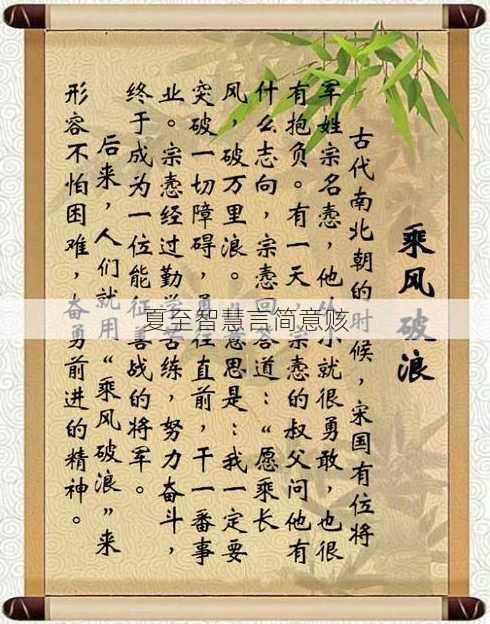 乘风破浪
古代南北朝的时候，宋国有位将
军姓宗名悫，他从小就很勇敢，也很
有抱负。有一天，宗悫的叔父问他有
什么志向，宗悫回答道：“愿乘长
风，破万里浪。”意思是：我一定要
突破一切障碍，勇往直前，干一番事
业。宗悫经过勤学苦练，努力奋斗，
终于成为一位能征善战的将军。
后来，人们就用“乘风破浪”来
形容不怕困难，奋勇前进的精神。
夏至智慧言简意赅